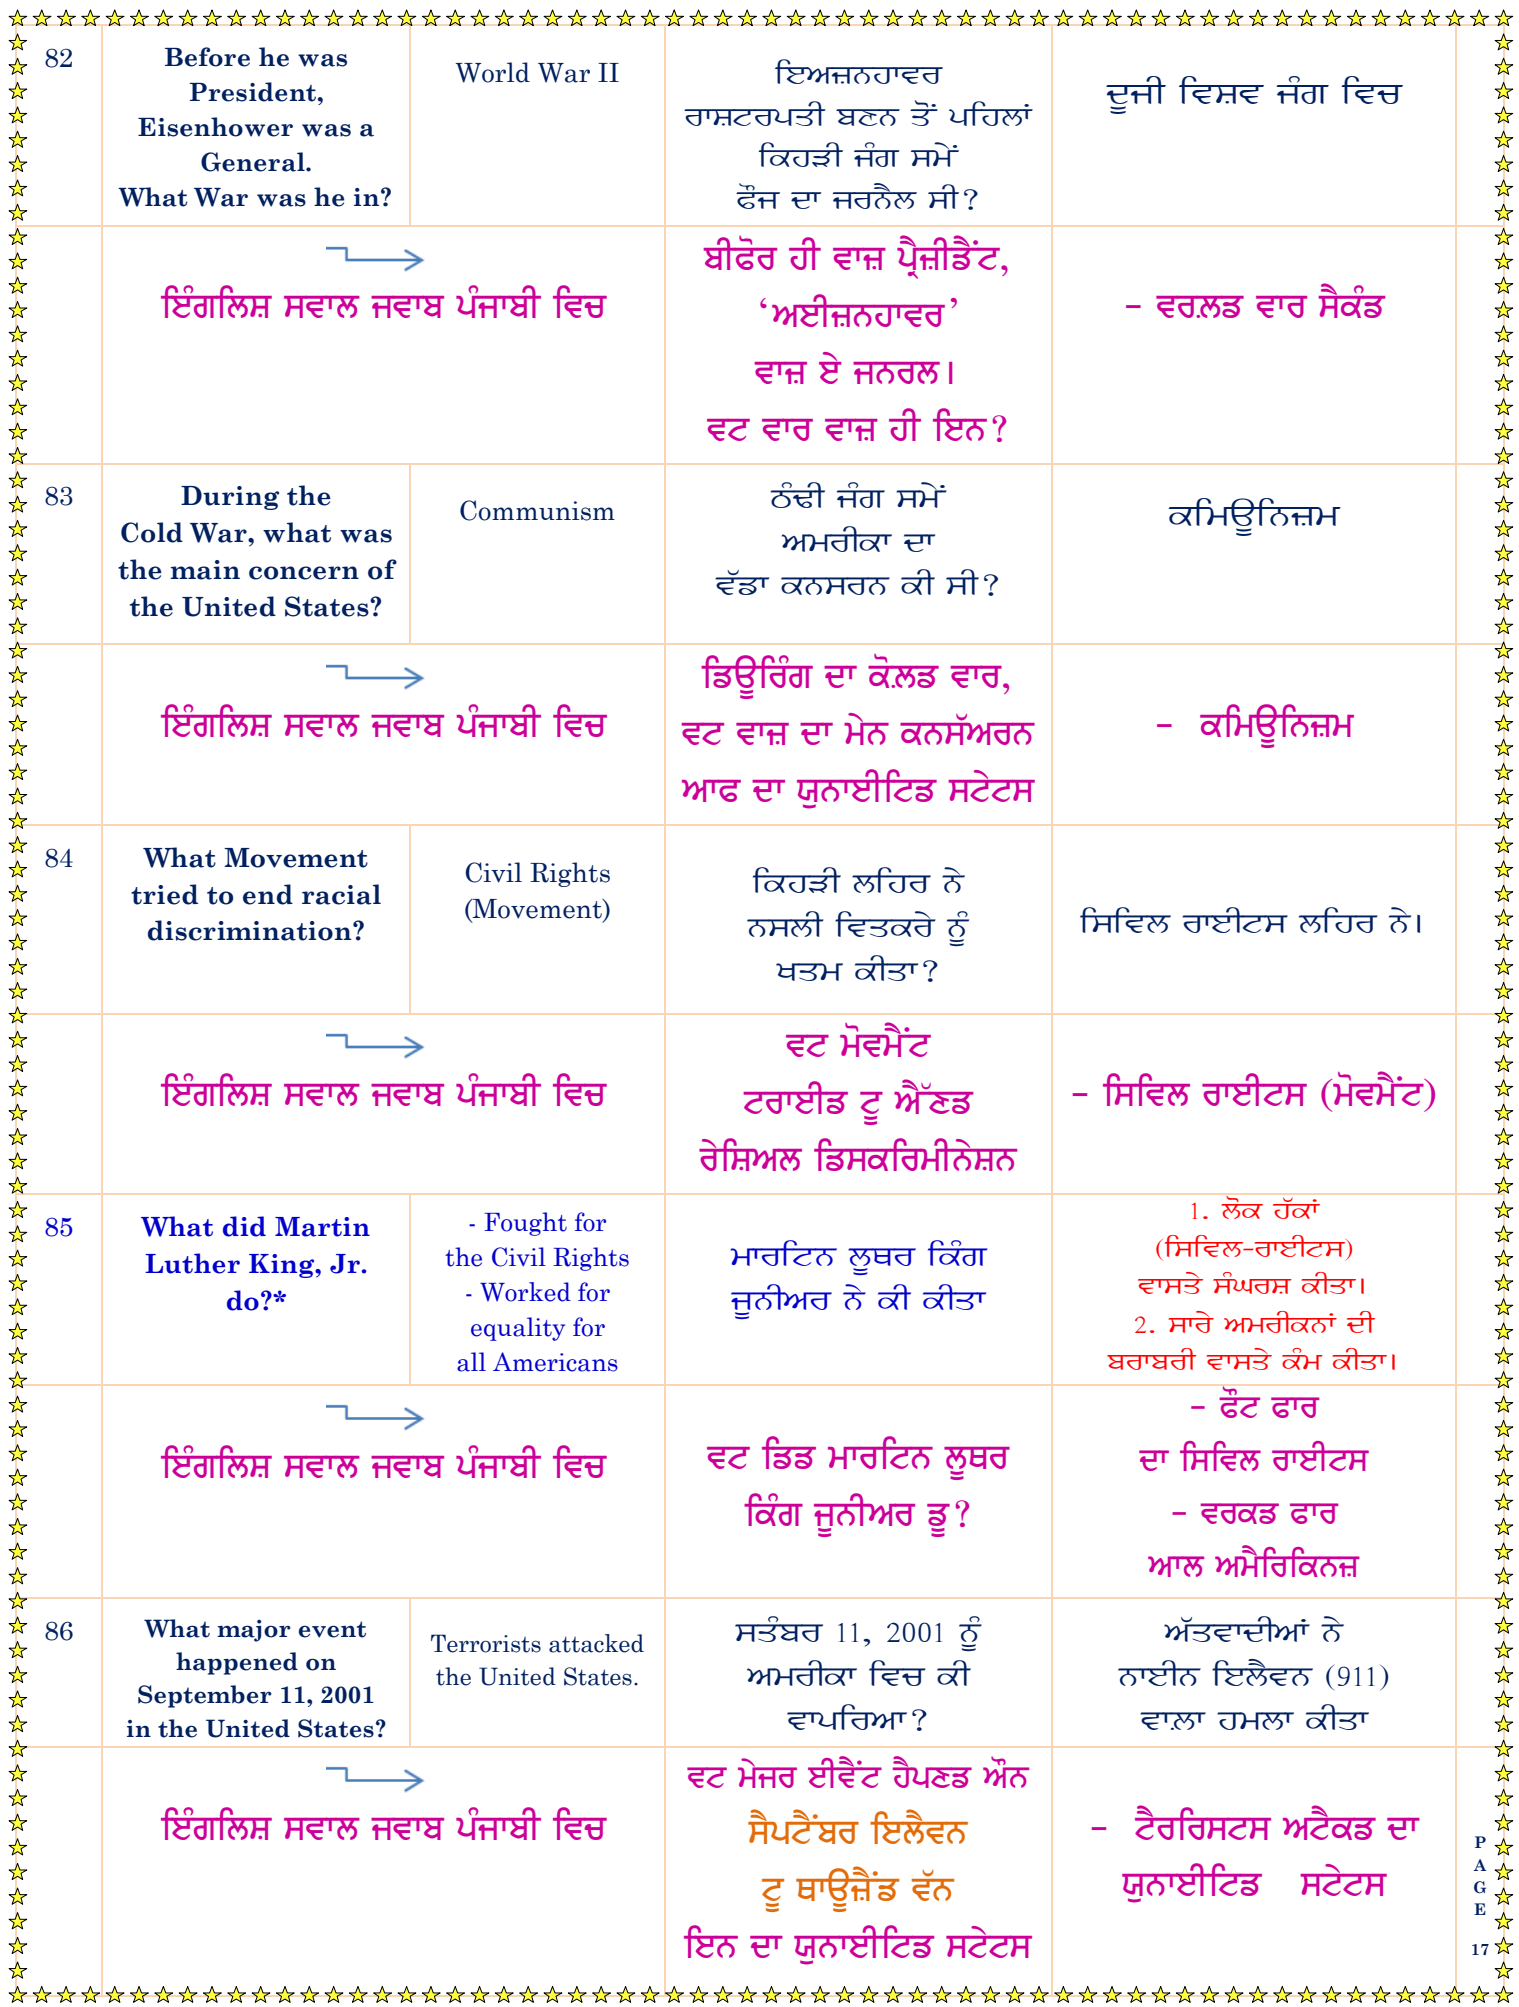 82
Before he was
President,
Eisenhower was a
General.
What War was he in?
World War II
ਇਅਜ਼ਨਹਾਵਰ
ਰਾਸ਼ਟਰਪਤੀ ਬਣਨ ਤੋਂ ਪਹਿਲਾਂ
ਕਿਹੜੀ ਜੰਗ ਸਮੇਂ
ਫੌਜ ਦਾ ਜਰਨੈਲ ਸੀ?
ਦੂਜੀ ਵਿਸ਼ਵ ਜੰਗ ਵਿਚ
ਇੰਗਲਿਸ਼ ਸਵਾਲ ਜਵਾਬ ਪੰਜਾਬੀ ਵਿਚ
ਬੀਫੋਰ ਹੀ ਵਾਜ਼ ਪ੍ਰੈਜ਼ੀਡੈਂਟ,
‘ਅਈਜ਼ਨਹਾਵਰ’
ਵਾਜ਼ ਏ ਜਨਰਲ।
ਵਟ ਵਾਰ ਵਾਜ਼ ਹੀ ਇਨ?
– ਵਰਲ਼ਡ ਵਾਰ ਸੈਕੰਡ
83
During the
Cold War, what was
the main concern of
the United States?
Communism
ਠੰਢੀ ਜੰਗ ਸਮੇਂ
ਅਮਰੀਕਾ ਦਾ
ਵੱਡਾ ਕਨਸਰਨ ਕੀ ਸੀ?
ਕਮਿਊਨਿਜ਼ਮ
ਇੰਗਲਿਸ਼ ਸਵਾਲ ਜਵਾਬ ਪੰਜਾਬੀ ਵਿਚ
ਡਿਊਰਿੰਗ ਦਾ ਕੋਲ਼ਡ ਵਾਰ,
ਵਟ ਵਾਜ਼ ਦਾ ਮੇਨ ਕਨਸੱਅਰਨ
ਆਫ ਦਾ ਯੁਨਾਈਟਿਡ ਸਟੇਟਸ
– ਕਮਿਊਨਿਜ਼ਮ
84
What Movement
tried to end racial
discrimination?
Civil Rights
(Movement)
ਕਿਹੜੀ ਲਹਿਰ ਨੇ
ਨਸਲੀ ਵਿਤਕਰੇ ਨੂੰ
ਖਤਮ ਕੀਤਾ?
ਸਿਵਿਲ ਰਾਈਟਸ ਲਹਿਰ ਨੇ।
ਇੰਗਲਿਸ਼ ਸਵਾਲ ਜਵਾਬ ਪੰਜਾਬੀ ਵਿਚ
ਵਟ ਮੋਵਮੈਂਟ
ਟਰਾਈਡ ਟੂ ਐੱਣਡ
ਰੇਸ਼ਿਅਲ ਡਿਸਕਰਿਮੀਨੇਸ਼ਨ
– ਸਿਵਿਲ ਰਾਈਟਸ (ਮੋਵਮੈਂਟ)
85
What did Martin
Luther King, Jr.
do?*
- Fought for
the Civil Rights
- Worked for
equality for
all Americans
ਮਾਰਟਿਨ ਲੂਥਰ ਕਿੰਗ
ਜੂਨੀਅਰ ਨੇ ਕੀ ਕੀਤਾ
1. ਲੋਕ ਹੱਕਾਂ
(ਸਿਵਿਲ-ਰਾਈਟਸ)
ਵਾਸਤੇ ਸੰਘਰਸ਼ ਕੀਤਾ।
2. ਸਾਰੇ ਅਮਰੀਕਨਾਂ ਦੀ
ਬਰਾਬਰੀ ਵਾਸਤੇ ਕੰਮ ਕੀਤਾ।
ਇੰਗਲਿਸ਼ ਸਵਾਲ ਜਵਾਬ ਪੰਜਾਬੀ ਵਿਚ
ਵਟ ਡਿਡ ਮਾਰਟਿਨ ਲੂਥਰ
ਕਿੰਗ ਜੂਨੀਅਰ ਡੂ?
– ਫੌਟ ਫਾਰ
ਦਾ ਸਿਵਿਲ ਰਾਈਟਸ
– ਵਰਕਡ ਫਾਰ
ਆਲ ਅਮੈਰਿਕਿਨਜ਼
86
What major event
happened on
September 11, 2001
in the United States?
Terrorists attacked
the United States.
ਸਤੰਬਰ 11, 2001 ਨੂੰ
ਅਮਰੀਕਾ ਵਿਚ ਕੀ
ਵਾਪਰਿਆ?
ਅੱਤਵਾਦੀਆਂ ਨੇ
ਨਾਈਨ ਇਲੈਵਨ (911)
ਵਾਲ਼ਾ ਹਮਲਾ ਕੀਤਾ
ਇੰਗਲਿਸ਼ ਸਵਾਲ ਜਵਾਬ ਪੰਜਾਬੀ ਵਿਚ
ਵਟ ਮੇਜਰ ਈਵੈਂਟ ਹੈਪਣਡ ਔਨ
ਸੈਪਟੈਂਬਰ ਇਲੈਵਨ
ਟੂ ਥਾਊਜ਼ੈਂਡ ਵੱਨ
ਇਨ ਦਾ ਯੁਨਾਈਟਿਡ ਸਟੇਟਸ
– ਟੈਰਰਿਸਟਸ ਅਟੈਕਡ ਦਾ
ਯੁਨਾਈਟਿਡ ਸਟੇਟਸ
PAGE
17